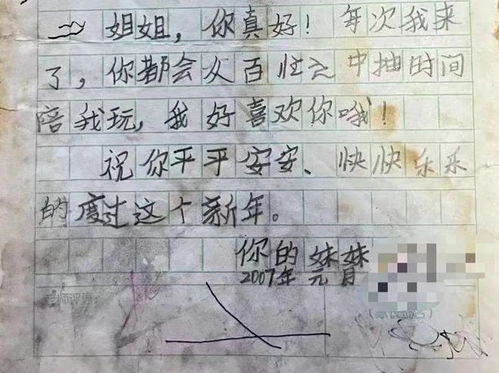 姐姐，你真好！每次我来
了，你都会从百忙之中抽时间
陪我玩，我好喜欢你哦！
祝你平平安安、快快乐乐
的度过这个新年。
你的妹妹
2007年元月